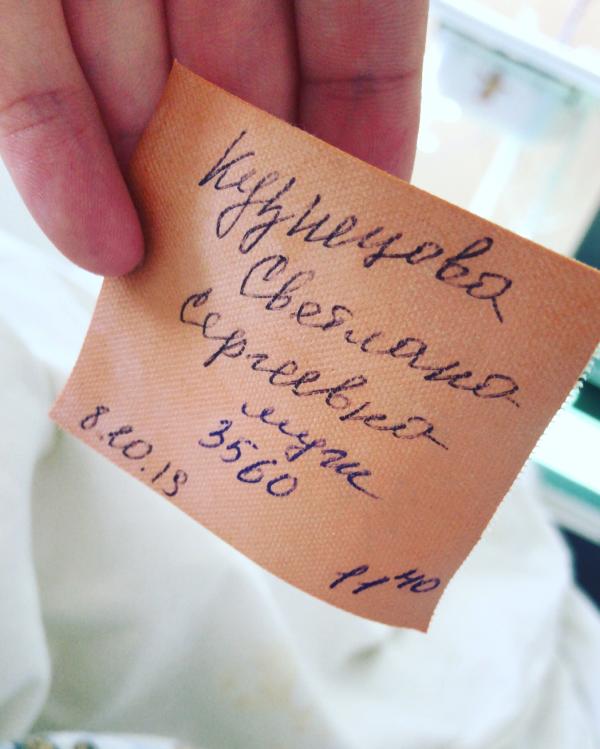 Кузнецова
Светлана
Сергеевна
муж
3560
8.10.13
11 40